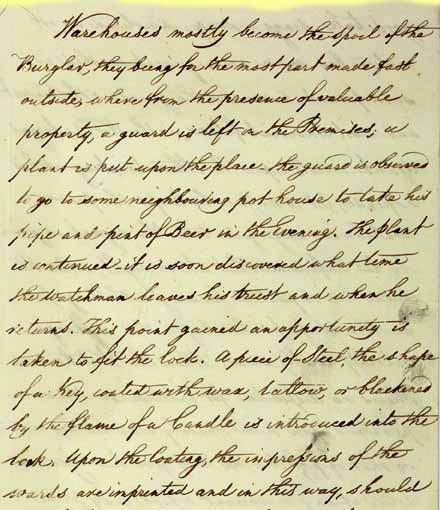 Warehouses mostly become the spoil of the
Burglar, they being for the most part made fast
outside, where from the presence of valuable
property, a guard is left on the Premises; a
plant is put upon the place - the guard is observed
to go to some neighbouring pot house to take his
pipe and pint of Beer in the Evening. The plant
is continued - it is soon discovered what time
the Watchman leaves his trust and when he
returns. This point gained an opportunity is
taken to fit the lock. A piece of Steel, the shape
of a Key, coated with wax, tallow, or blackened
by the flame of a Candle is introduced into the
lock. Upon the coating, the impressions of the
wards are imprinted and in this way, should